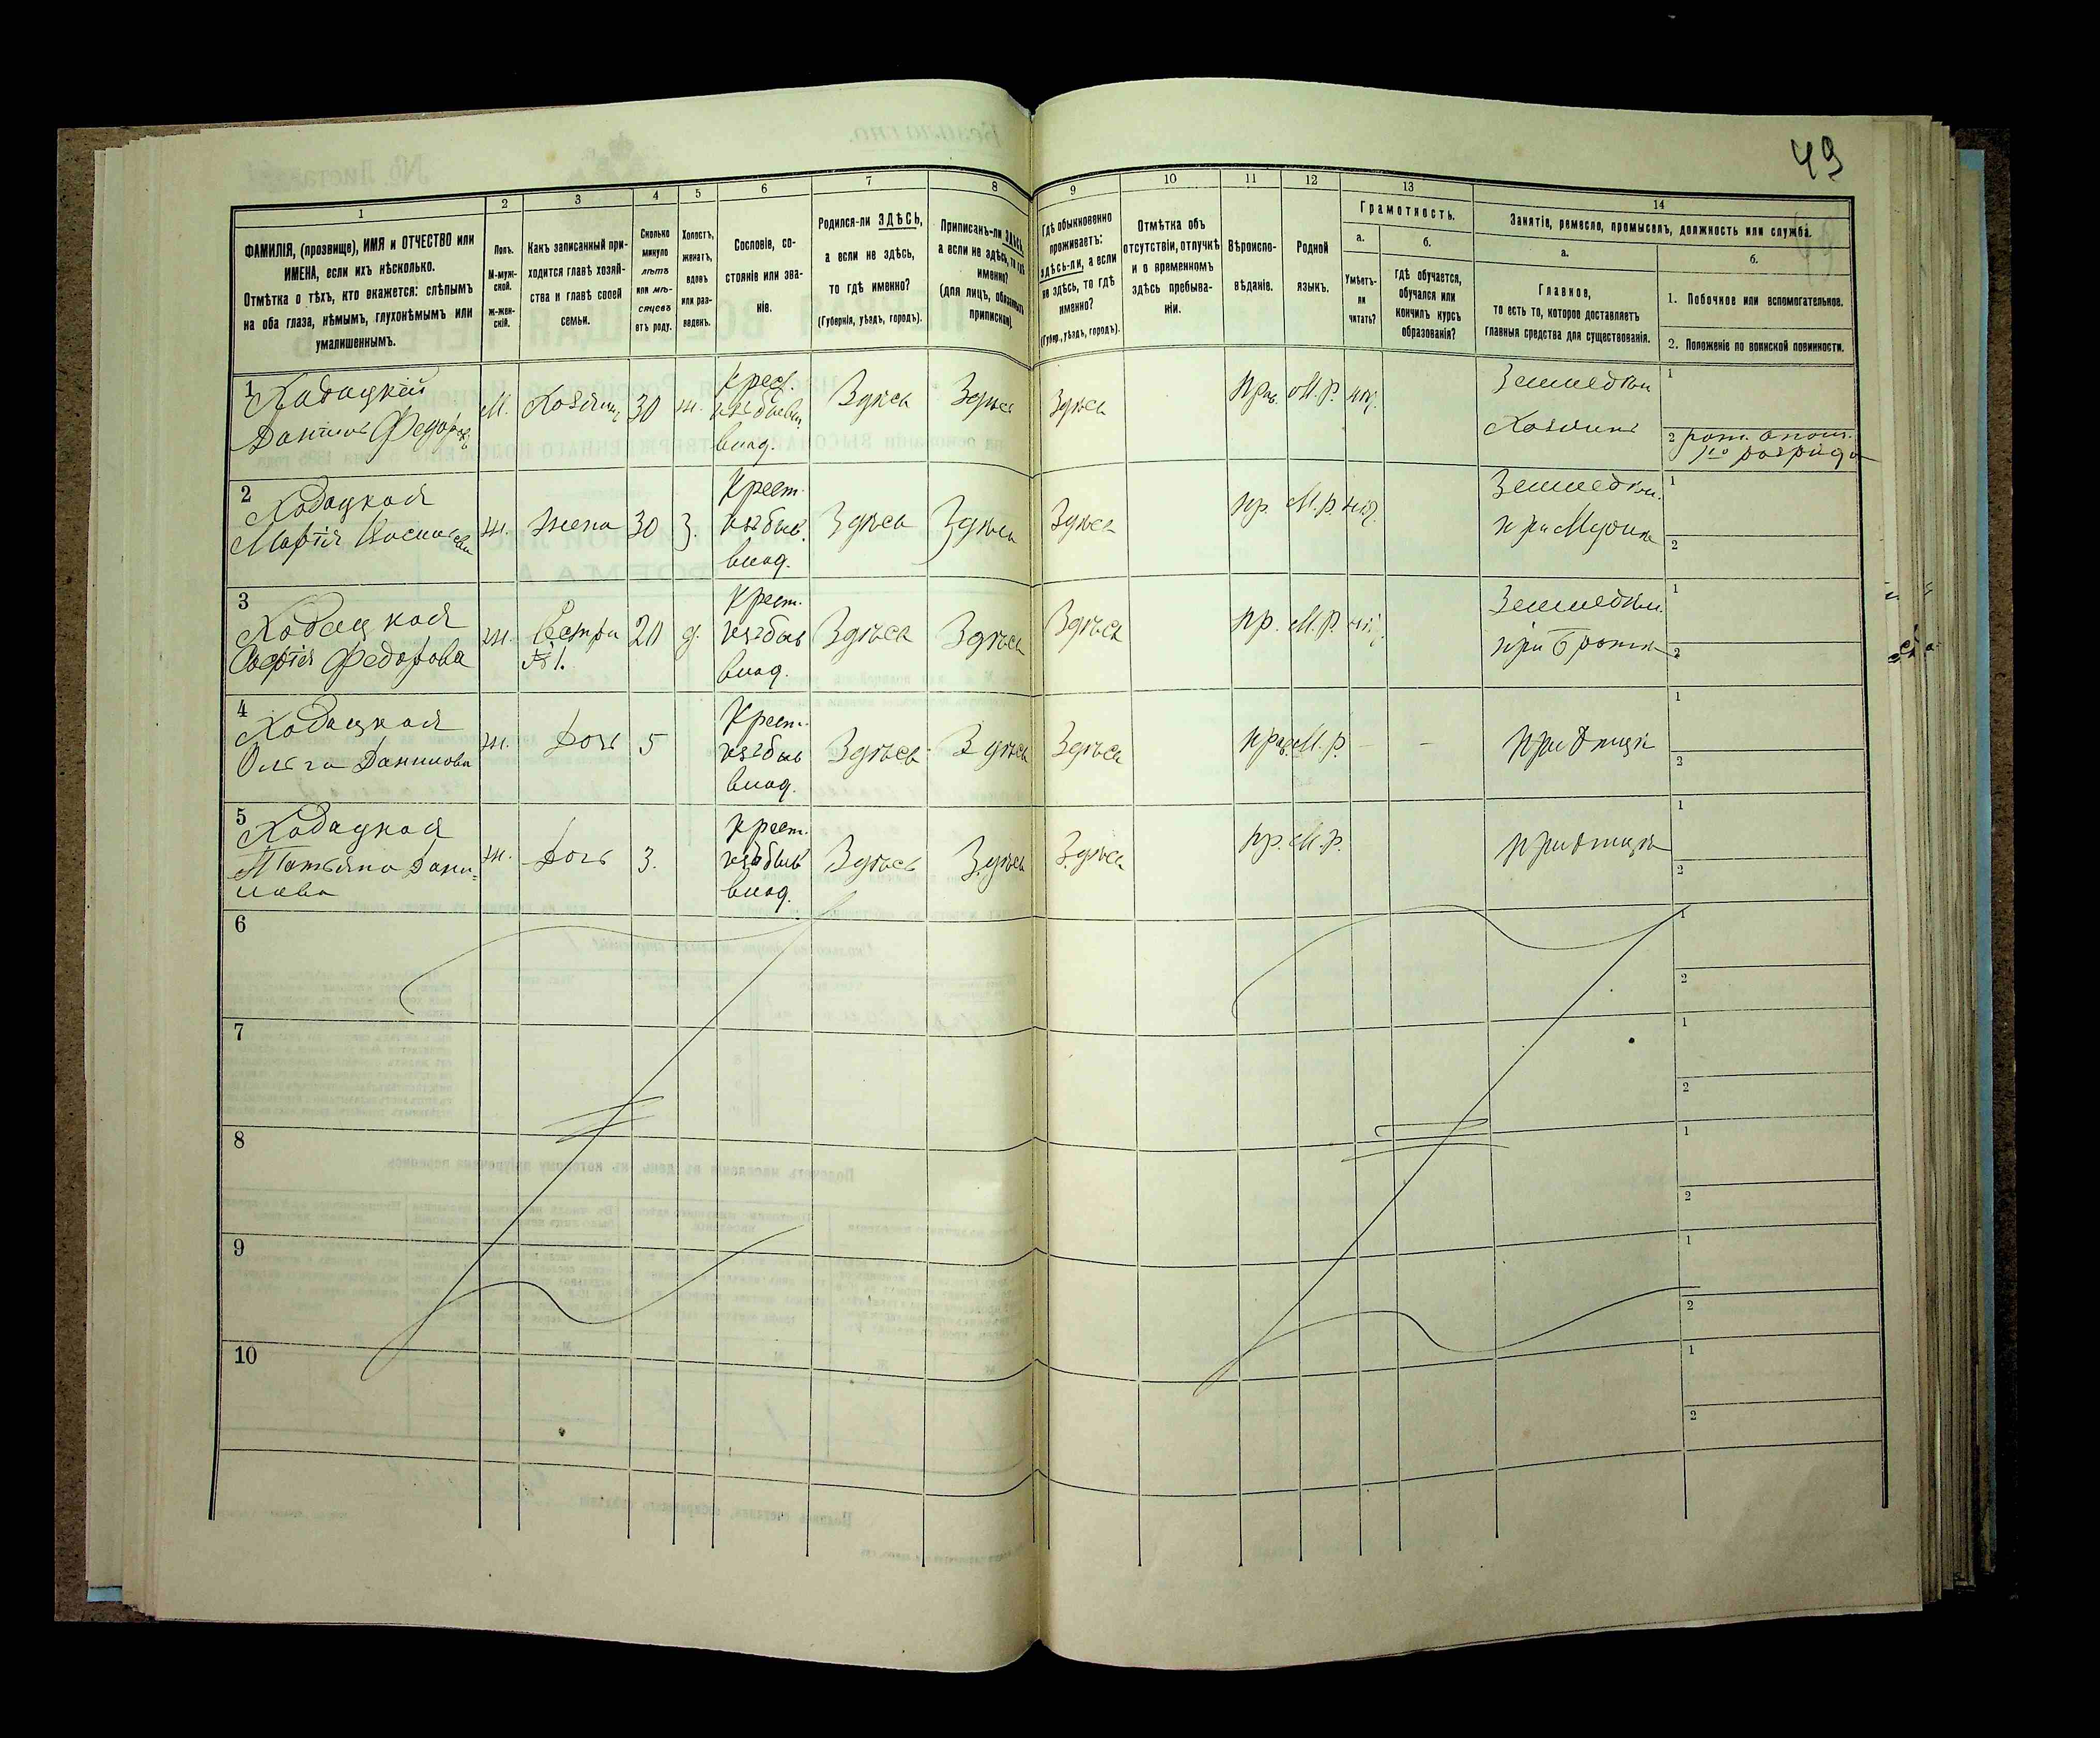 49
1
2
3
4
5
6
7
8
9
10
11
12
13
14
ФАМИЛІЯ, (прозвище), ИМЯ и ОТЧЕСТВО или
ИМЕНА, если ихъ нѣсколько.
Отмѣтка о тѣхъ, кто окажется: слѣпымъ
на оба глаза, нѣмымъ, глухонѣмымъ или
умалишеннымъ.
Полъ.
М-муж-
ской.
Ж-жен-
скій.
Какъ записанный при-
ходится главѣ хозяй-
ства и главѣ своей
семьи.
Сколько
минуло
лѣтъ
или мѣ-
сяцевъ
отъ роду.
Холостъ,
женатъ,
вдовъ
или раз-
веденъ.
Сословіе, со-
стояніе или зва-
ніе.
Родился-ли ЗДѢСЬ,
а если не здѣсь,
то гдѣ именно?
(Губернія, уѣздъ, городъ).
Приписанъ-ли ЗДѢСЬ,
а если не здѣсь, то гдѣ
именно?
(для лицъ, обязанныхъ
припиской).
Гдѣ обыкновенно
проживаетъ:
здѣсь-ли, а если
не здѣсь, то гдѣ
именно?
(Губер., уѣздъ, городъ).
Отмѣтка объ
отсутствіи, отлучкѣ
и о временномъ
здѣсь пребыва-
ніи.
Вѣроиспо-
вѣданіе.
Родной
языкъ.
Грамотность.
а.
Умѣетъ-
ли
читать?
б.
гдѣ обучается,
обучался или
кончилъ курсъ
образованія?
Занятіе, ремесло, промыселъ, должность или служба.
а.
Главное,
то есть то, которое доставляетъ
главныя средства для существованія.
б.
1. Побочное или вспомогательное.
2. Положеніе по воинской повинности.
1 Ходацкій
Данило Федоров
М. Хозяинъ 30 ж.
Крест.
изъ бывш.
влад.
Здѣсь Здѣсь Здѣсь Прав. М.Р. нѣт.
Земледѣл.
Хозяинъ
1
2 рат. ополч.
1го разряда
2 Ходацкая
Марія
ж. Жена 30 З.
Крест.
изъ бывш.
влад.
Здѣсь Здѣсь Здѣсь пр. М.Р. нѣт.
Земледѣл.
при Мужѣ
1
2
3 Ходацкая
Софія Федорова
ж. Сестра
№ 1.
20 д.
Крест.
изъ быв
влад.
Здѣсь Здѣсь Здѣсь пр. М.Р. нѣт.
Земледѣл.
при Братѣ
1
2
4 Ходацкая
Ольга Данилова
ж. Дочь 5
Крест.
изъ быв
влад.
Здѣсь Здѣсь Здѣсь прав. М.Р. - -
при отцѣ
1
2
5 Ходацкая
Татьяна Дани=
лова
ж. Дочь 3.
Крест.
изъ быв
влад.
Здѣсь Здѣсь Здѣсь пр. М.Р.
при отцѣ
1
2
6
1
2
7
1
2
8
1
2
9
1
2
10
1
2